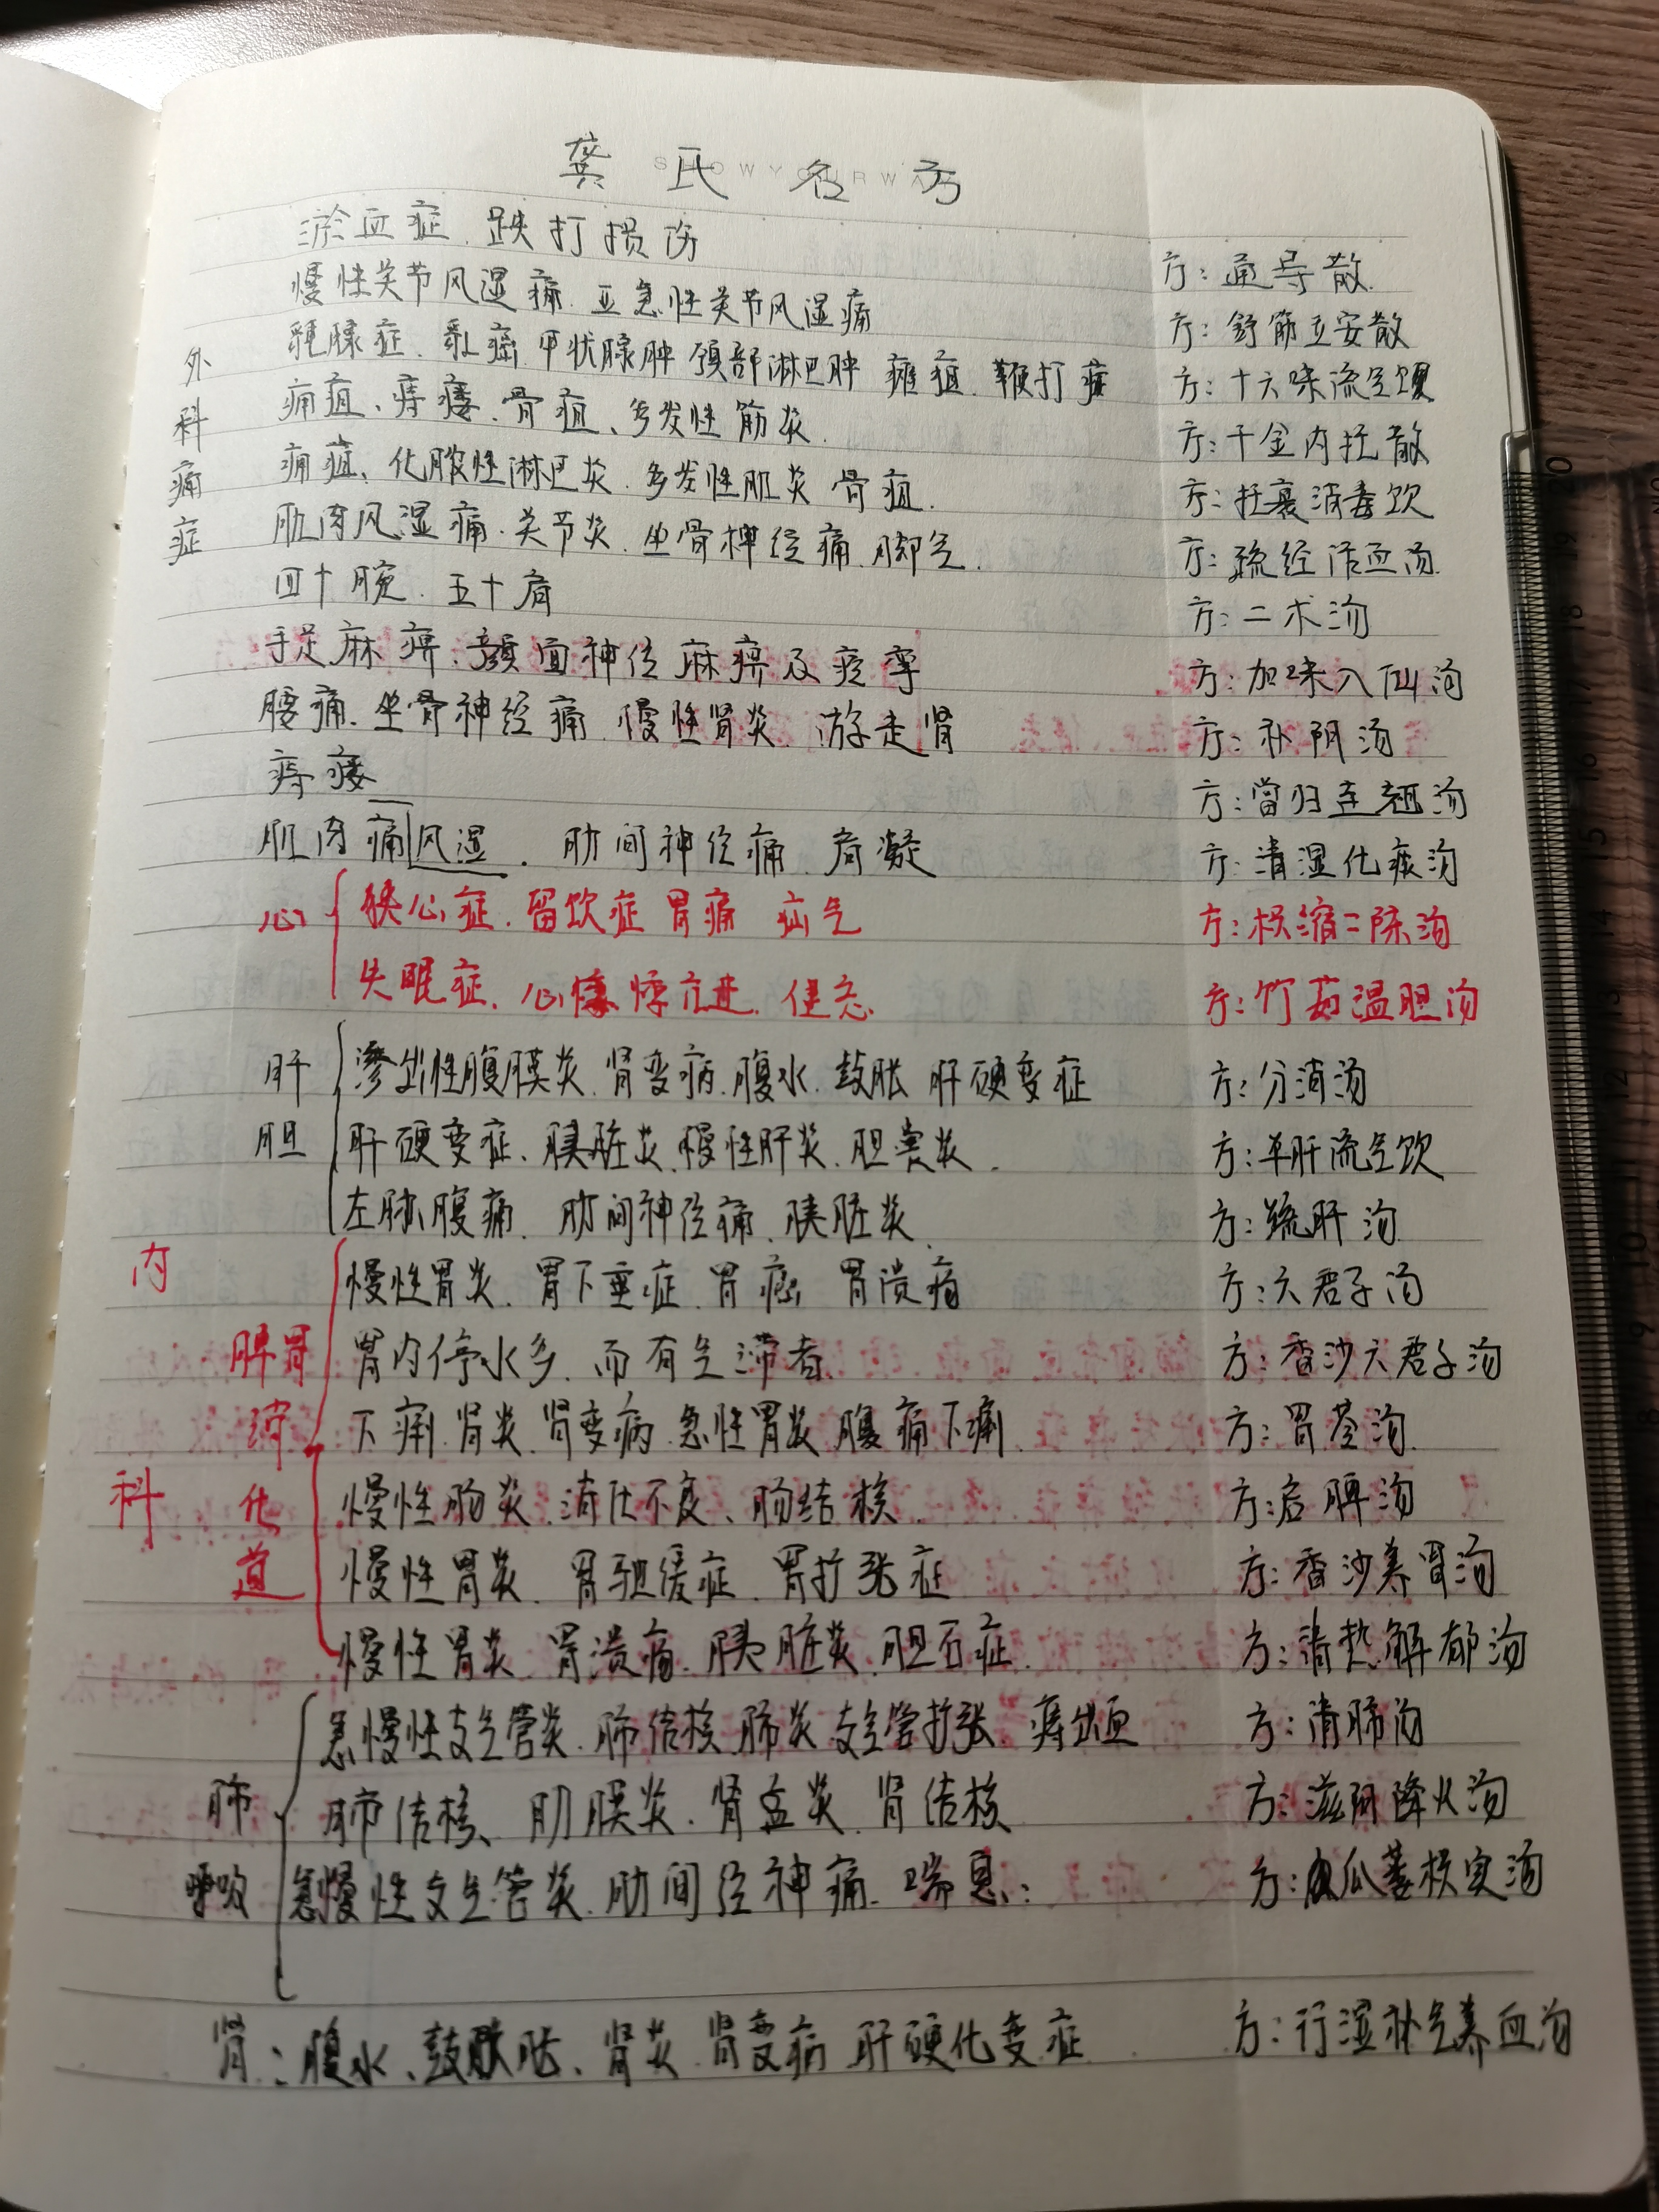 龚氏名方
淤血症、跌打损伤 方：通导散
慢性关节风湿痛、亚急性关节风湿痛 方：舒筋立安散
腺症、乳癌 甲状腺肿 颈部淋巴肿 瘫疽、鞭打症 方：十六味流气饮
痈疽、痔瘘、骨疽、多发性筋炎 方：千金内托散
痈疽、化脓性淋巴炎、多发性肌炎 骨疽 方：托裏消毒饮
肌肉风湿痛、关节炎、坐骨神经痛、脚气 方：疏经活血汤
四十腕、五十肩 方：二术汤
手足麻痹、颜面神经麻痹及痉挛 方：加味八仙汤
腰痛、坐骨神经痛、慢性肾炎、游走肾 方：补阴汤
痔瘘 方：当归连翘汤
肌肉痛风湿、肋间神经痛、肩凝 方：清湿化痰汤
外科痛症
心 狭心症、留饮症 胃痛 疝气 方：枳缩二陈汤
失眠症、心悸亢进、健忘 方：竹茹温胆汤
肝胆 渗出性腹膜炎、肾变病、腹水、鼓胀 肝硬变症 方：分消汤
肝硬变症、胰脏炎、慢性肝炎、胆囊炎 方：平肝流气饮
左胁腹痛、肋间神经痛、胰脏炎 方：疏肝汤
内科
脾胃消化道
慢性胃炎、胃下垂症、胃癌 胃溃疡 方：六君子汤
胃内停水多、而有气滞者 方：香沙六君子汤
下痢、肾炎、肾变病、急性胃炎 腹痛下痢 方：胃苓汤
慢性肠炎、消化不良、肠结核 方：启脾汤
慢性胃炎、胃弛缓症、胃扩张症 方：香沙养胃汤
慢性胃炎、胃溃疡、胰脏炎、胆石症 方：清热解郁汤
肺呼吸 急慢性支气管炎、肺结核 肺炎 支气管扩张、痔出血 方：清肺汤
肺结核、肋膜炎、肾盂炎、肾结核 方：滋阴降火汤
急慢性支气管炎、肋间经神痛、喘息： 方：瓜蒌枳实汤
肾：腹水、鼓胀、肾炎、肾变病 肝硬化变症 方：行湿补气养血汤